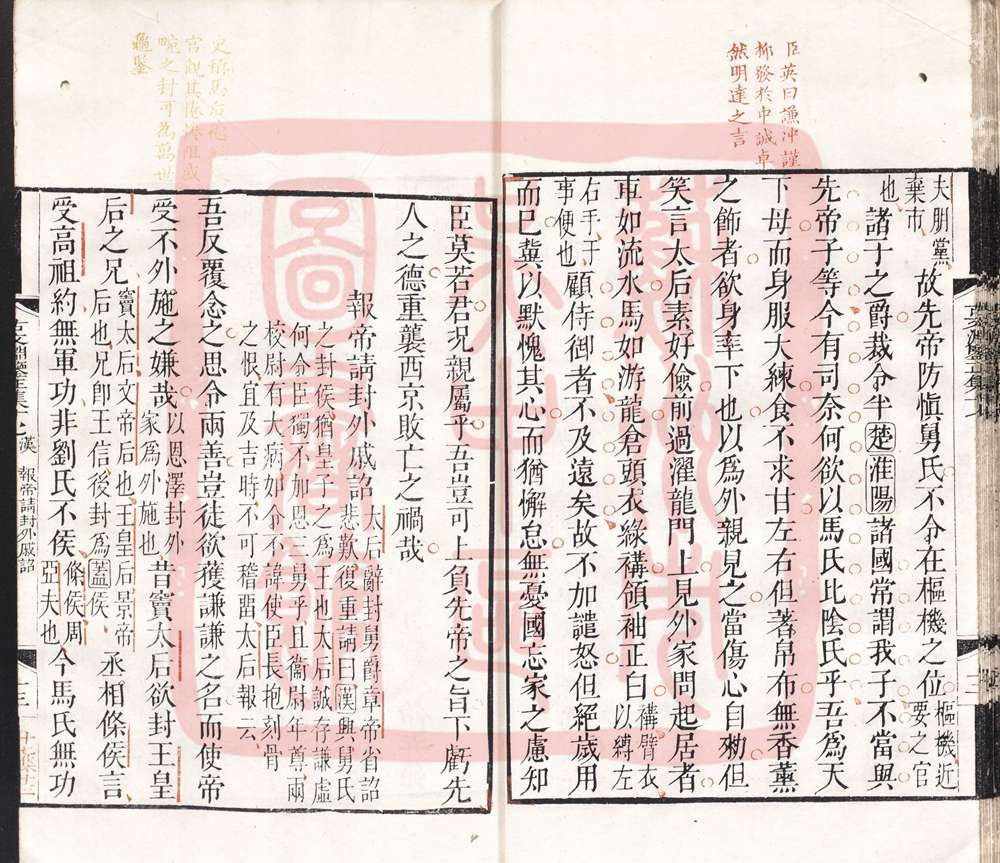 臣英曰謙沖謹
抑發於中誠卓
然明達之言
夫朋黨
棄市
也
故先帝防愼舅氏不令在樞機之位
樞機近
要之官
諸子之爵裁令半楚淮陽諸國常謂我子不當與
先帝子等今有司奈何欲以馬氏比陰氏乎吾爲天
下母而身服大練食不求甘左右但著帛布無香薰
之飾者欲身率下也以爲外親見之當傷心自勑但
笑言太后素好儉前過濯龍門上見外家問起居者
車如流水馬如游龍倉頭衣綠褠領袖正白
褠臂衣
以縛左
右手于
事便也
顧侍御者不及遠矣故不加譴怒但絕歲用
而已冀以默愧其心而猶懈怠無憂國忘家之慮知
官觀其惓惓
畹之封可爲萬世
龜鑒
臣莫若君況親屬乎吾豈可上負先帝之旨下虧先
人之德重襲西京敗亡之禍哉
報帝請封外戚詔
太后辭封舅爵章帝省詔
悲歎復重請曰漢興舅氏
之封侯猶皇子之爲王也太后誠存謙虛
何令臣獨不加恩三舅乎且衞尉年尊兩
校尉有大病如令不諱使臣長抱刻骨
之恨宜及吉時不可稽畱太后報云
吾反覆念之思令兩善豈徒欲獲謙謙之名而使帝
受不外施之嫌哉
以恩澤封外
家爲外施也
昔竇太后欲封王皇
后之兄
竇太后文帝后也王皇后景帝
后也兄卽王信後封爲蓋侯
丞相條侯言
受高祖約無軍功非劉氏不侯
條侯周
亞夫也
今馬氏無功
漢
報帝請封外戚詔